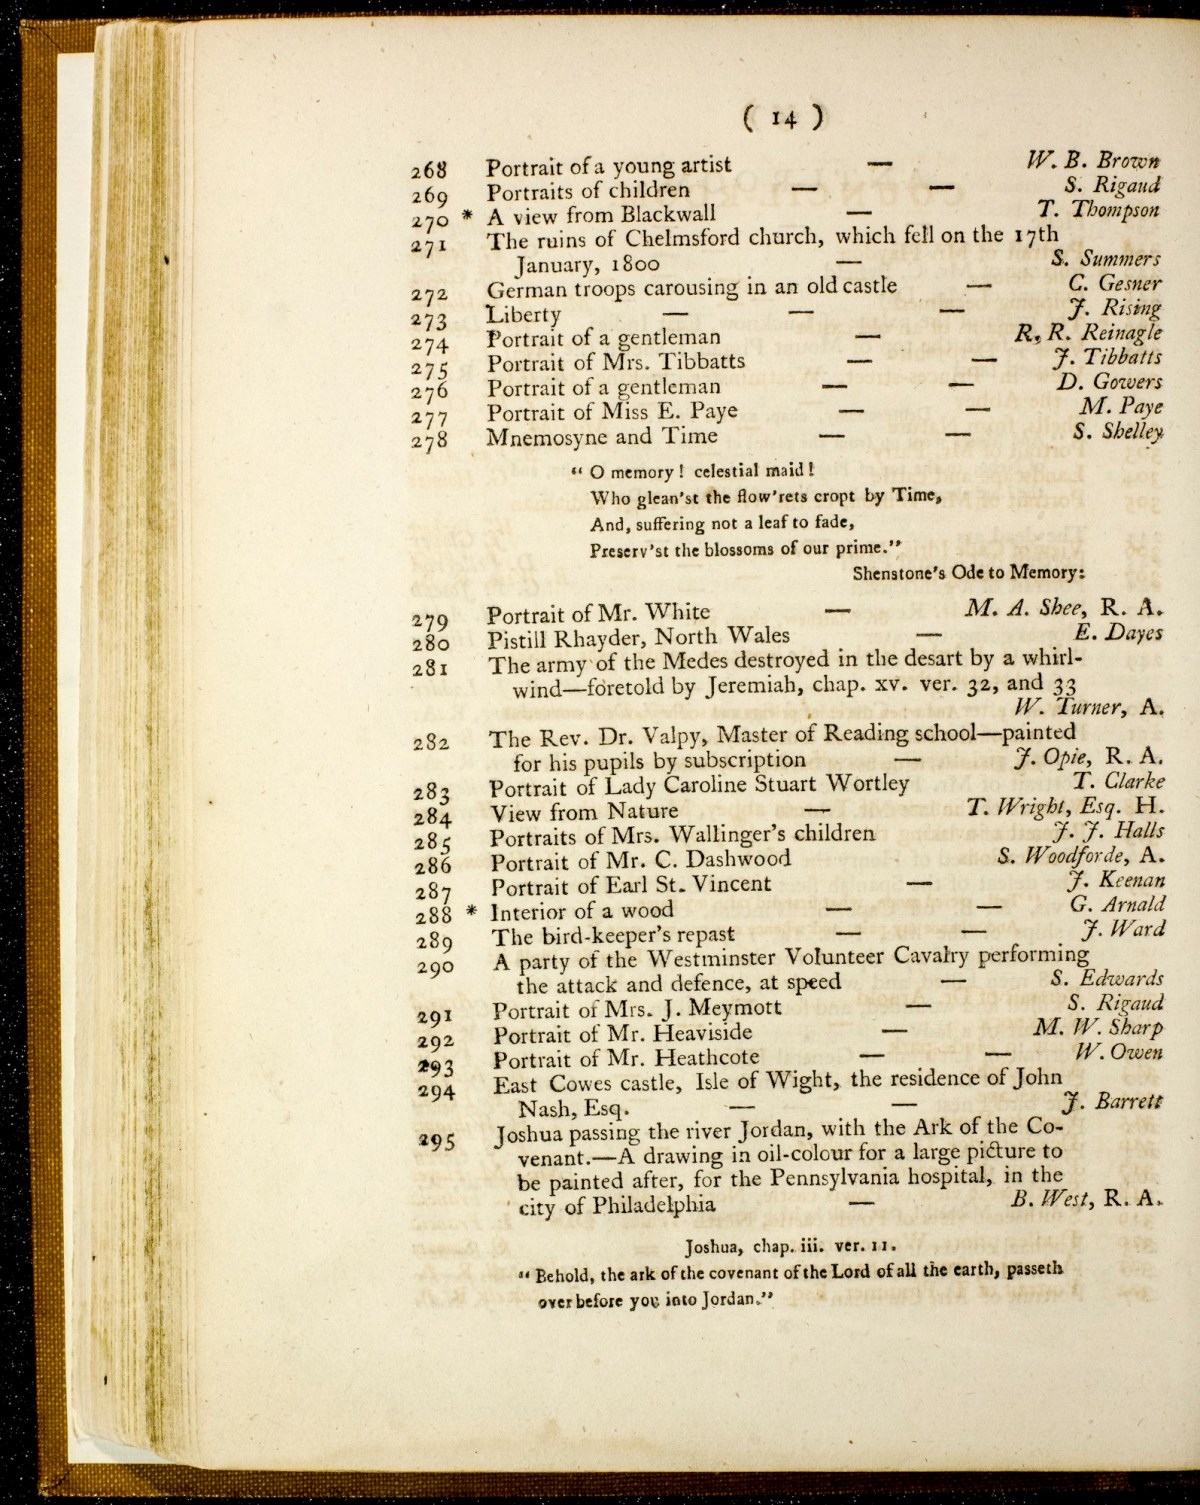 ( 14 )
268 Portrait of a young artist — W. B. Brown
269 Portraits of children — — S. Rigaud
270 * A view from Blackwall — T. Thompson
271 The ruins of Chelmsford church, which fell on the 17th
January, 1800 — S. Summers
272 German troops carousing in an old castle — C. Gesner
273 Liberty — — — J. Rising
274 Portrait of a gentleman — R. R. Reinagle
275 Portrait of Mrs. Tibbatts — — J. Tibbatts
276 Portrait of a gentleman — — D. Gowers
277 Portrait of Miss E. Paye — — M. Paye
278 Mnemosyne and Time — — S. Shelley
“ O memory ! celestial maid !
Who glean’st the flow’rets cropt by Time,
And, suffering not a leaf to fade,
Preserv’st the blossoms of our prime.”
Shenstone’s Ode to Memory:
279 Portrait of Mr. White — M. A. Shee, R. A.
280 Pistill Rhayder, North Wales — E. Dayes
281 The army of the Medes destroyed in the desart by a whirl-
wind—foretold by Jeremiah, chap. xv. ver. 32, and 33
W. Turner, A.
282 The Rev. Dr. Valpy, Master of Reading school—painted
for his pupils by subscription — J. Opie, R. A.
283 Portrait of Lady Caroline Stuart Wortley T. Clarke
284 View from Nature — T. Wright, Esq. H.
285 Portraits of Mrs. Wallinger’s children J. J. Halls
286 Portrait of Mr. C. Dashwood S. Woodforde, A.
287 Portrait of Earl St. Vincent — J. Keenan
288 * Interior of a wood — — G. Arnald
289 The bird-keeper’s repast — — J. Ward
290 A party of the Westminster Volunteer Cavalry performing
the attack and defence, at speed — S. Edwards
291 Portrait of Mrs. J. Meymott — S. Rigaud
292 Portrait of Mr. Heaviside — M. W. Sharp
293 Portrait of Mr. Heathcote — — W. Owen
294 East Cowes castle, Isle of Wight, the residence of John
Nash, Esq. — — J. Barrett
295 Joshua passing the river Jordan, with the Ark of the Co-
venant.—A drawing in oil-colour for a large picture to
be painted after, for the Pennsylvania hospital, in the
city of Philadelphia — B. West, R. A.
Joshua, chap. iii. ver. 11.
“ Behold, the ark of the covenant of the Lord of all the earth, passeth
over before you into Jordan.”